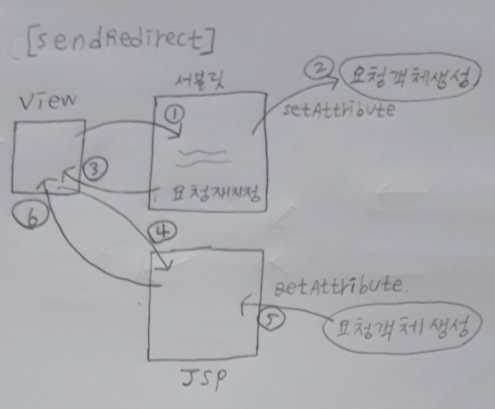 [sendRedirect]
서블릿
② 요청객체생성
View
①
setAttribute
③
요청재지정
⑥
④
getAttribute.
⑤
요청객체생성
JSP